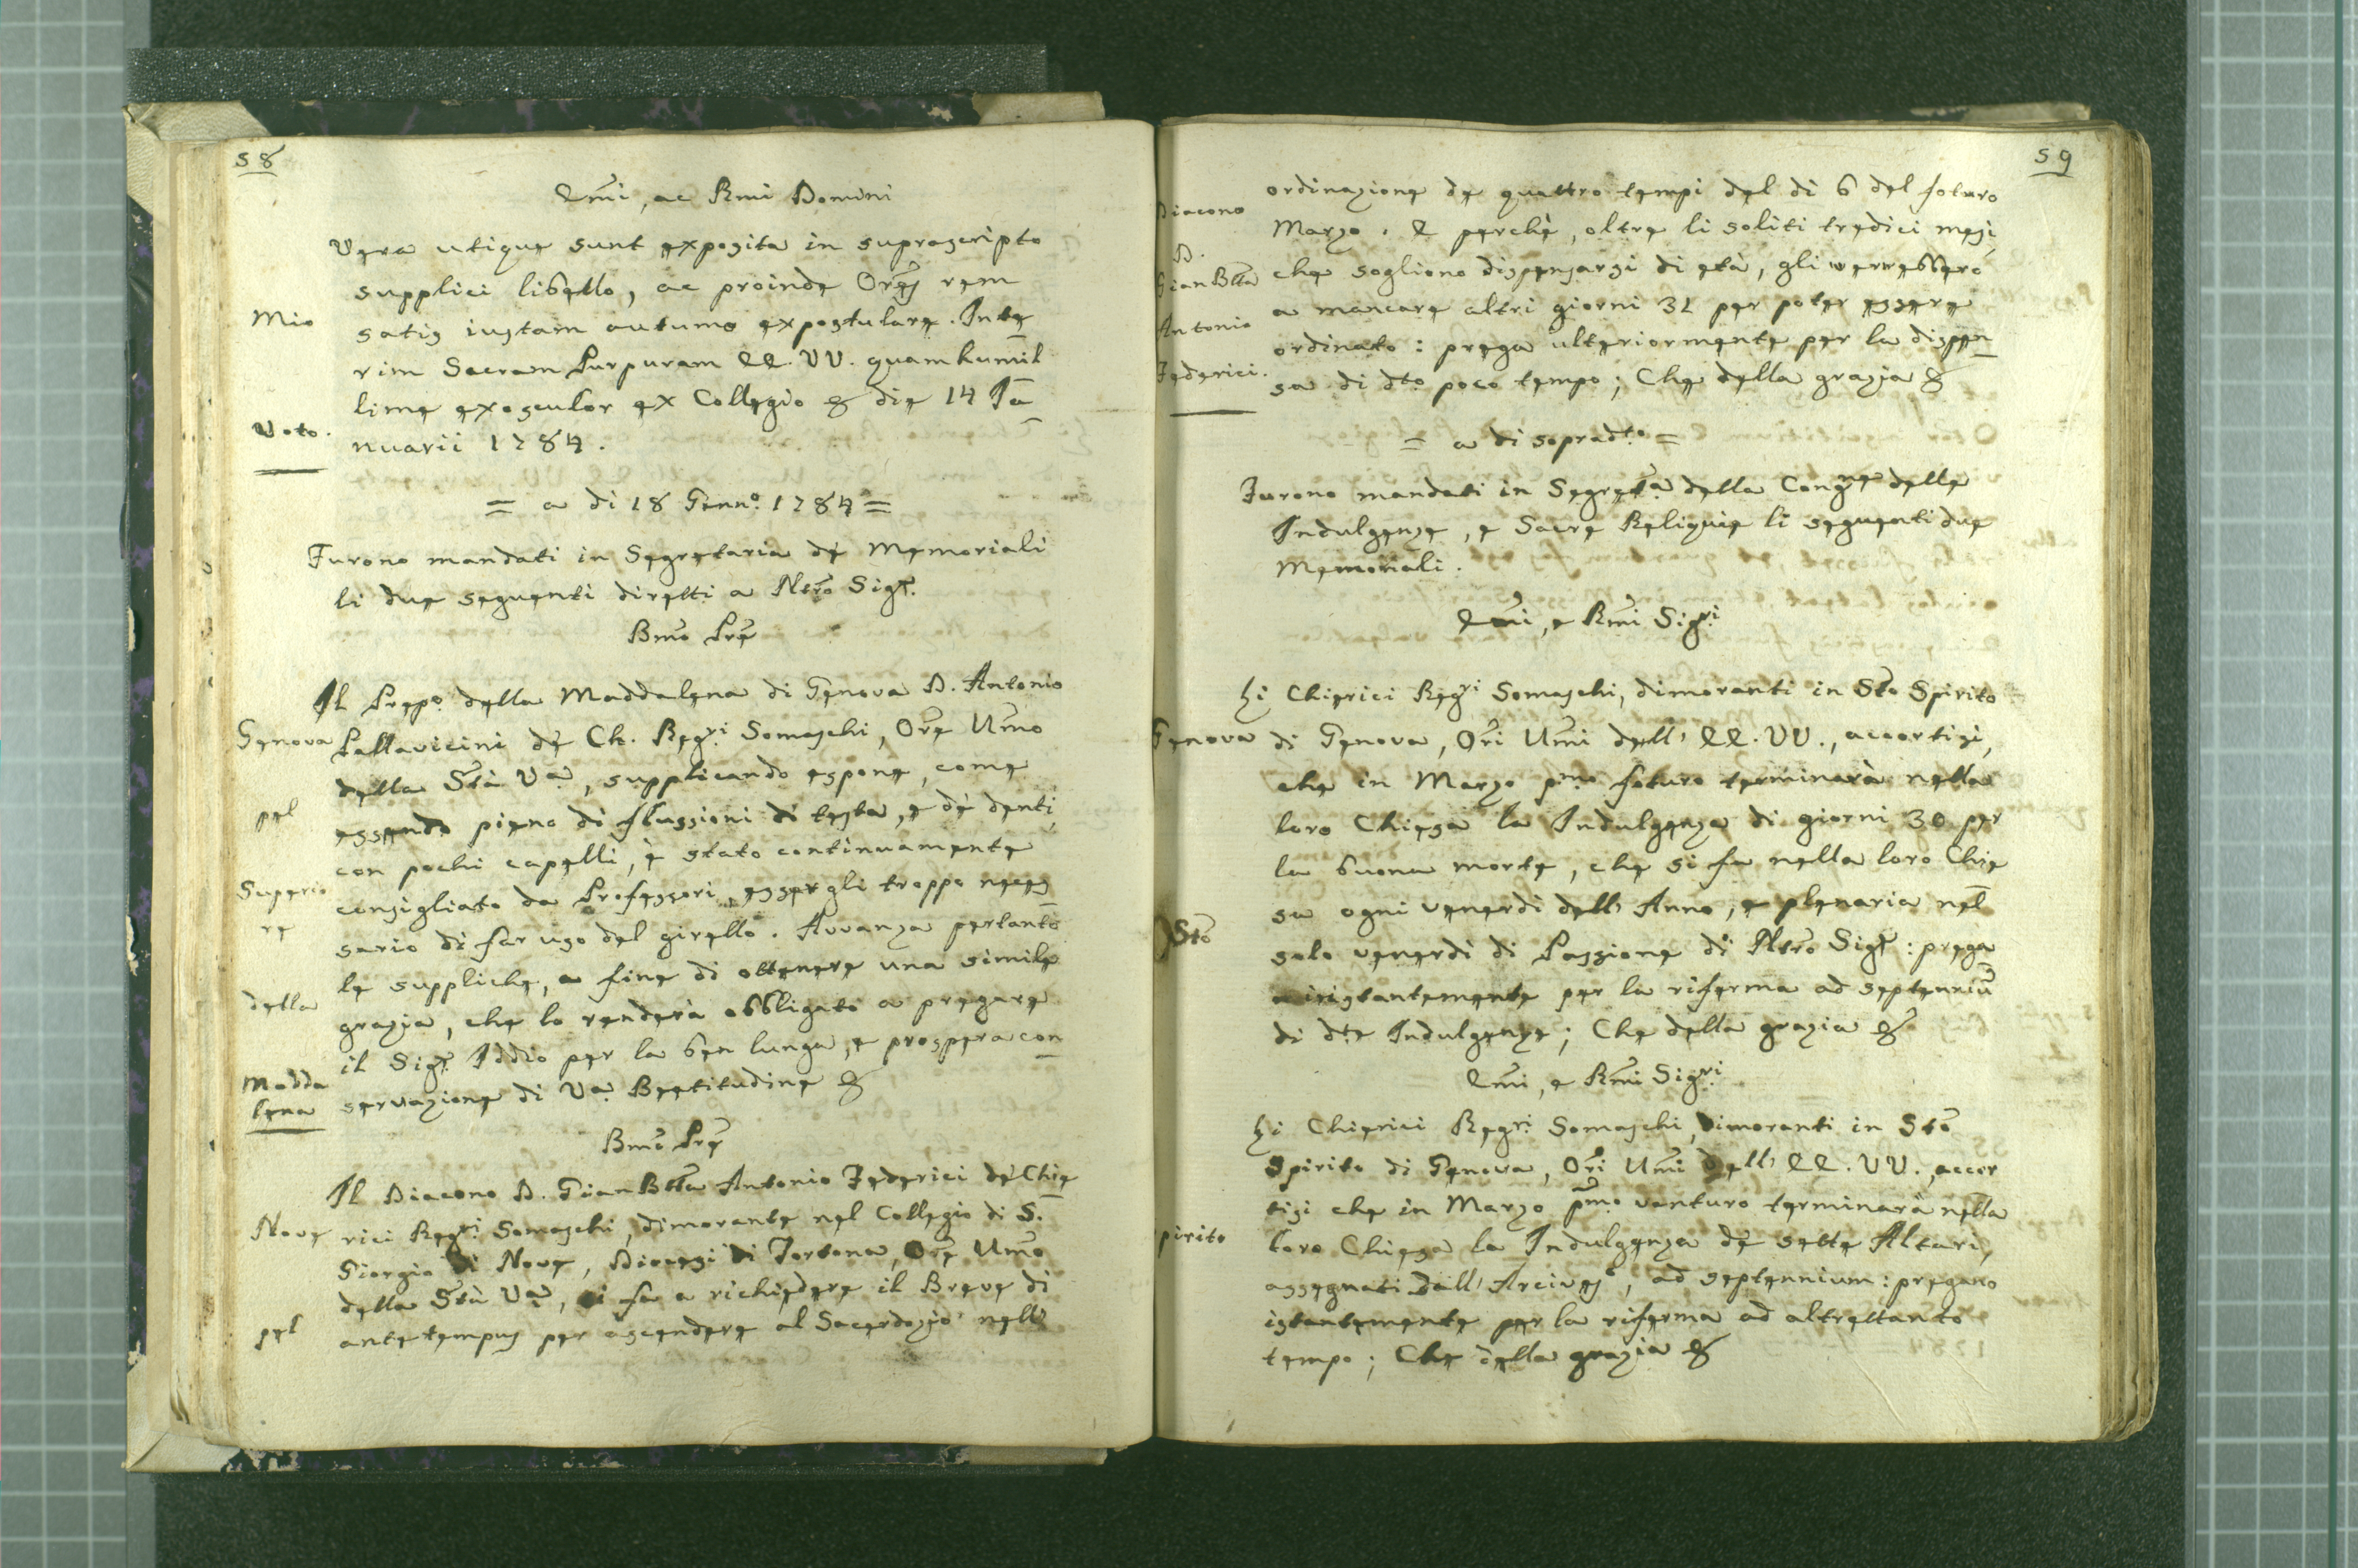 58
Emi, ac Rmi Domini
Vera utique sunt exposita in suprascripto
supplici libello, ac proinde Ores rem
Mio
satis iustam autumo expostulare. Inte
rim Sacram Purpuram EE. VV. quam humil
lime exosculor ex Collegio & die 14 Ja
Voto.
nuarii 1784.
= a di 18 Genn.o 1784 =
Furono mandati in Segretaria de' Memoriali
li due seguenti diretti a Ntro Sigr.
Bmo Pre
Il Prep.o della Maddalena di Genova D. Antonio
Genova
Pallavicini de' Ch. Reg.ri Somaschi, Ore Umo
della Stà V.a, supplicando espone, come
pel
essendo pieno di flussioni di testa, e de' denti,
con pochi capelli, è stato continuamente
Superio
re
consigliato da Professori, essergli troppo neces
sario di far uso del girello. Avvanza pertanto
le suppliche, a fine di ottenere una simile
della
grazia, che lo renderà obbligato a pregare
il Sigr. Iddio per la ben lunga, e prospera con
Madda
lena
servazione di V.a Beetitudine &
Bmo Pre
Il Diacono D. Gian Btta Antonio Federici de' Chie
Nove
rici Reg.ri Somaschi, dimorante nel Collegio di S.
Giorgio di Nove, Diocesi di Tortona, Ore Umo
della Stà V.a, si fa a richiedere il Breve di
pel
ante tempus per ascendere al Sacerdozio nell'
59
ordinazione de quattro tempi del di 6 del foturo
Diacono
Marzo. E perchè, oltre li soliti tredici mesi,
D.
che sogliono dispensarsi di età, gli verrebbero
Gian Btta
a mancare altri giorni 31 per poter essere
Antonio
ordinato: prega ulteriormente per la dispen
Federici.
sa di dto poco tempo; Che della grazia &
= a di sopradt.o =
Furono mandati in Segret.a della Cong.ne delle
Indulgenze, e Sacre Reliquie li seguenti due
Memoriali.
Emi, e Rmi Sig.ri
Li Chierici Reg.ri Somaschi, dimoranti in Sto Spirito
Genova
di Genova, Ori Umi dell' EE. VV., accortisi,
che in Marzo pmo foturo terminarà nella
loro Chiesa la Indulgenza di giorni 30 per
la buona morte, che si fa nella loro Chie
sa ogni venerdì dell' Anno, e plenaria nel
Sto
solo venerdì di Passione di Ntro Sigr: prega
istantemente per la riferma ad septenniū
di dte Indulgenze; Che della grazia &
Emi, e Rmi Sig.ri
Li Chierici Reg.ri Somaschi, dimoranti in Sto
Spirito di Genova, Ori Umi dell' EE. VV., accor
tisi che in Marzo pmo venturo terminarà nella
pirito
loro Chiesa la Indulgenza de sette Altari,
assegnati dall' Arcives.o, ad septennium: pregano
istantemente per la riferma ad altrettanto
tempo; Che della grazia &